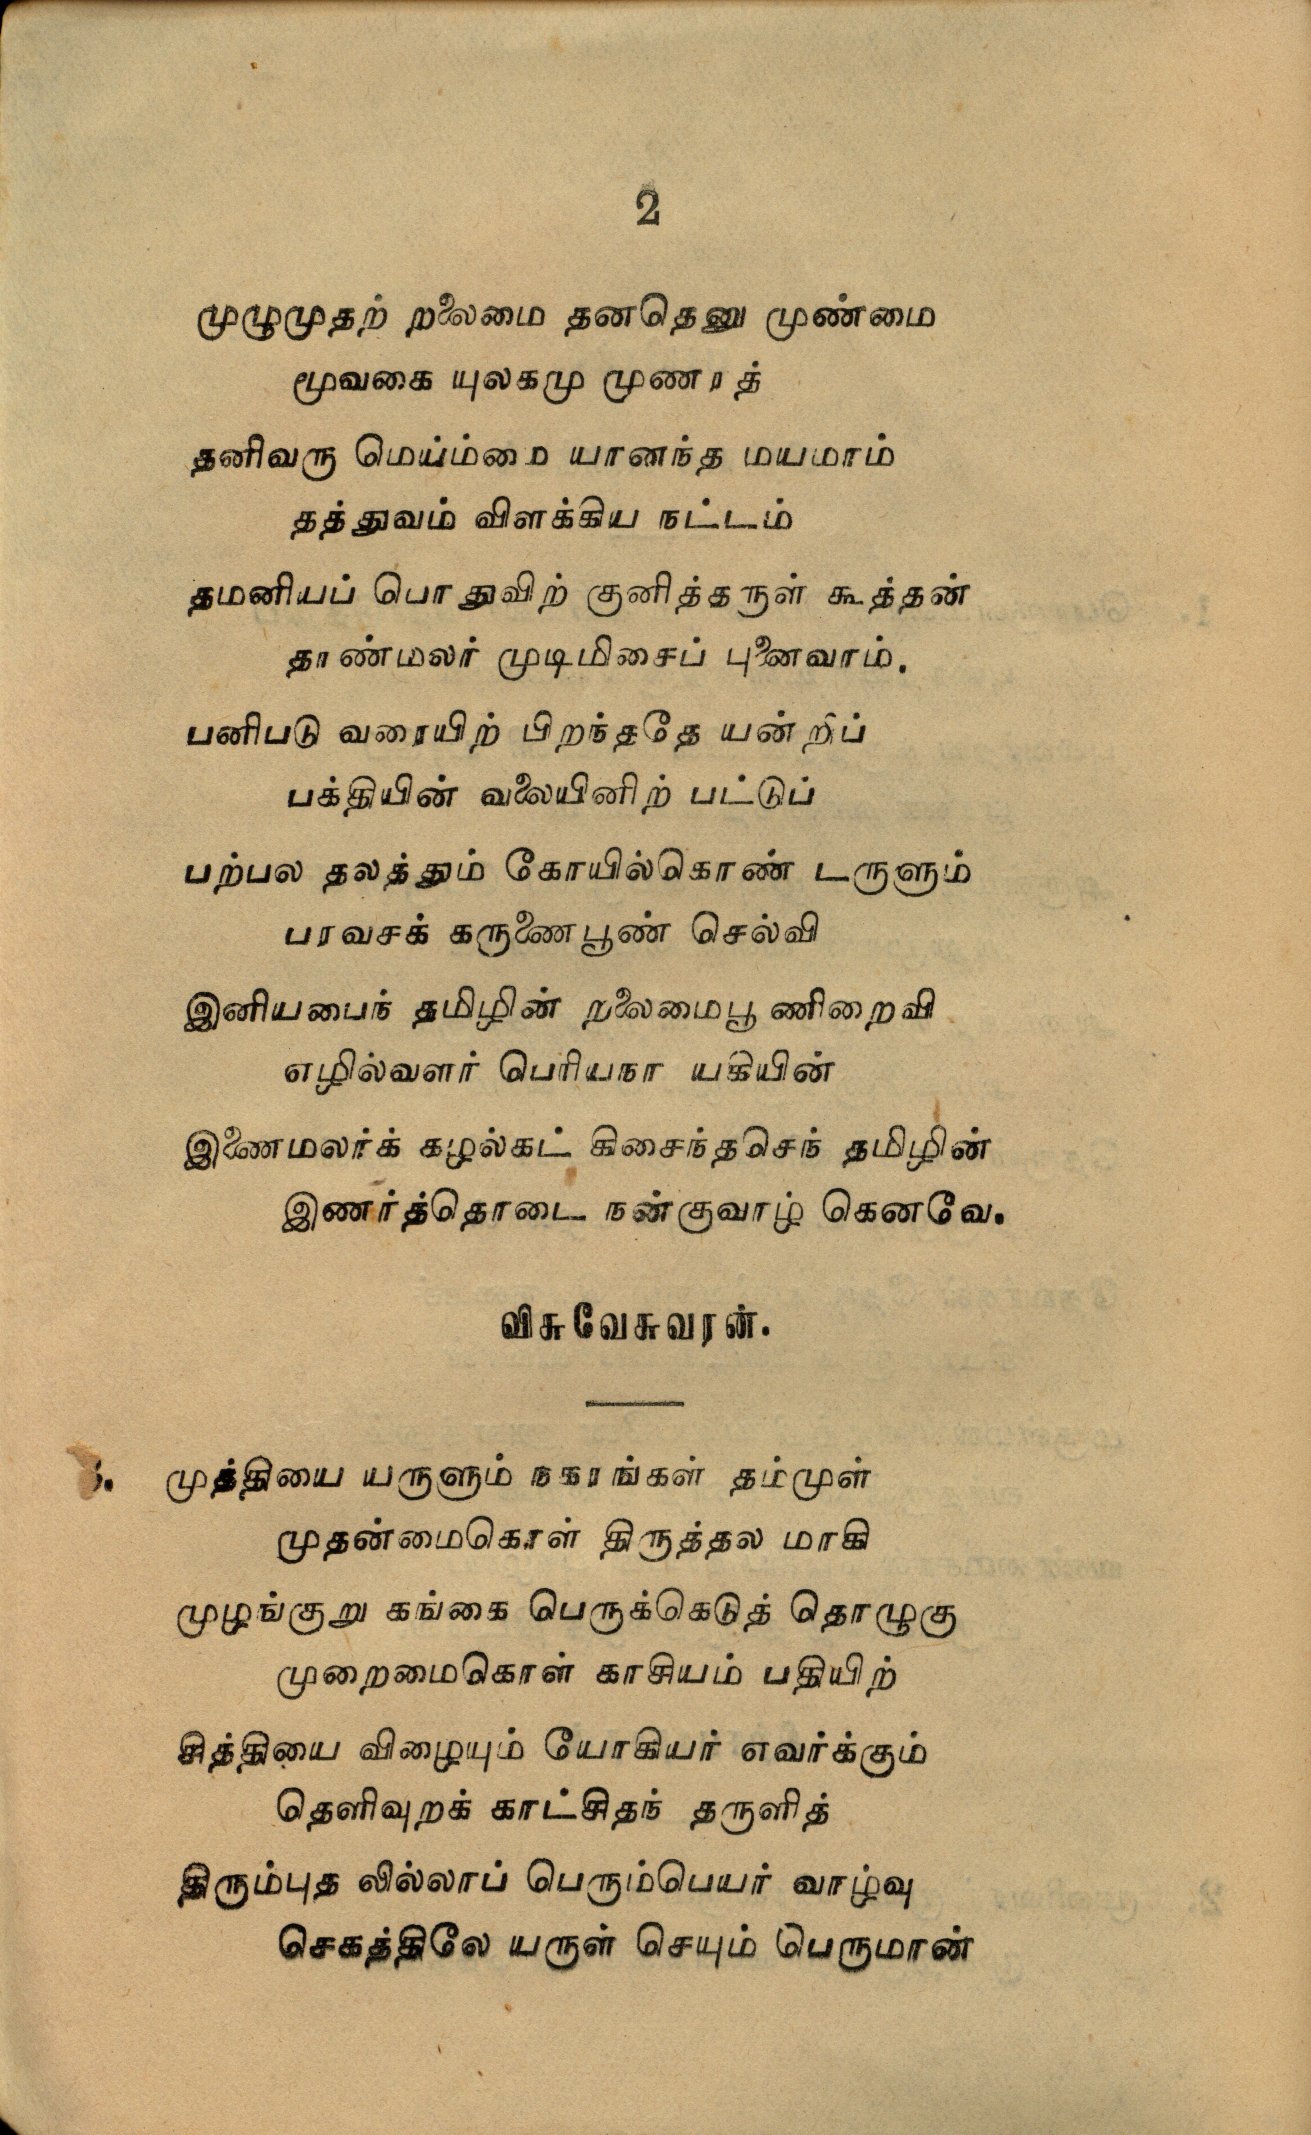 2
முழுமுதற் றலைமை தனதெனு முண்மை
மூவகை யுலகமு முணரத்
தனிவரு மெய்ம்மை யானந்த மயமாம்
தத்துவம் விளக்கிய நட்டம்
தமனியப் பொதுவிற் குனித்தருள் கூத்தன்
தாண்மலர் முடிமிசைப் புனைவாம்.
பனிபடு வரையிற் பிறந்ததே யன்றிப்
பக்தியின் வலையினிற் பட்டுப்
பற்பல தலத்தும் கோயில்கொண் டருளும்
பரவசக் கருணைபூண் செல்வி
இனியபைந் தமிழின் றலைமைபூ ணிறைவி
எழில்வளர் பெரியநா யகியின்
இணைமலர்க் கழல்கட் கிசைந்தசெந் தமிழின்
இணர்த்தொடை நன்குவாழ் கெனவே.
விசுவேசுவரன்.
முத்தியை யருளும் நகரங்கள் தம்முள்
முதன்மைகொள் திருத்தல மாகி
முழங்குறு கங்கை பெருக்கெடுத் தொழுகு
முறைமைகொள் காசியம் பதியிற்
சித்தியை விழையும் யோகியர் எவர்க்கும்
தெளிவுறக் காட்சிதந் தருளித்
திரும்புத லில்லாப் பெரும்பெயர் வாழ்வு
செகத்திலே யருள் செயும் பெருமான்